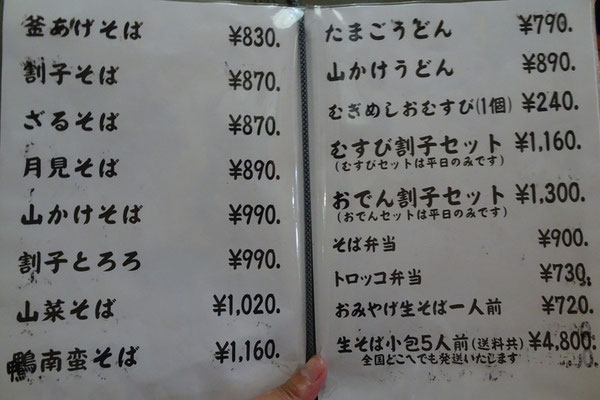 釜あげそば ¥830.
割子そば ¥870.
ざるそば ¥870.
月見そば ¥890.
山かけそば ¥990.
割子とろろ ¥990.
山菜そば ¥1,020.
鴨南蛮そば ¥1,160.
たまごうどん ¥790.
山かけうどん ¥890.
むぎめしおむすび(1個) ¥240.
むすび割子セット ¥1,160.
(むすびセットは平日のみです)
おでん割子セット ¥1,300.
(おでんセットは平日のみです)
そば弁当 ¥900.
トロッコ弁当 ¥730.
おみやげ生そば一人前 ¥720.
生そば小包5人前(送料共) ¥4,800.
全国どこへでも発送いたします